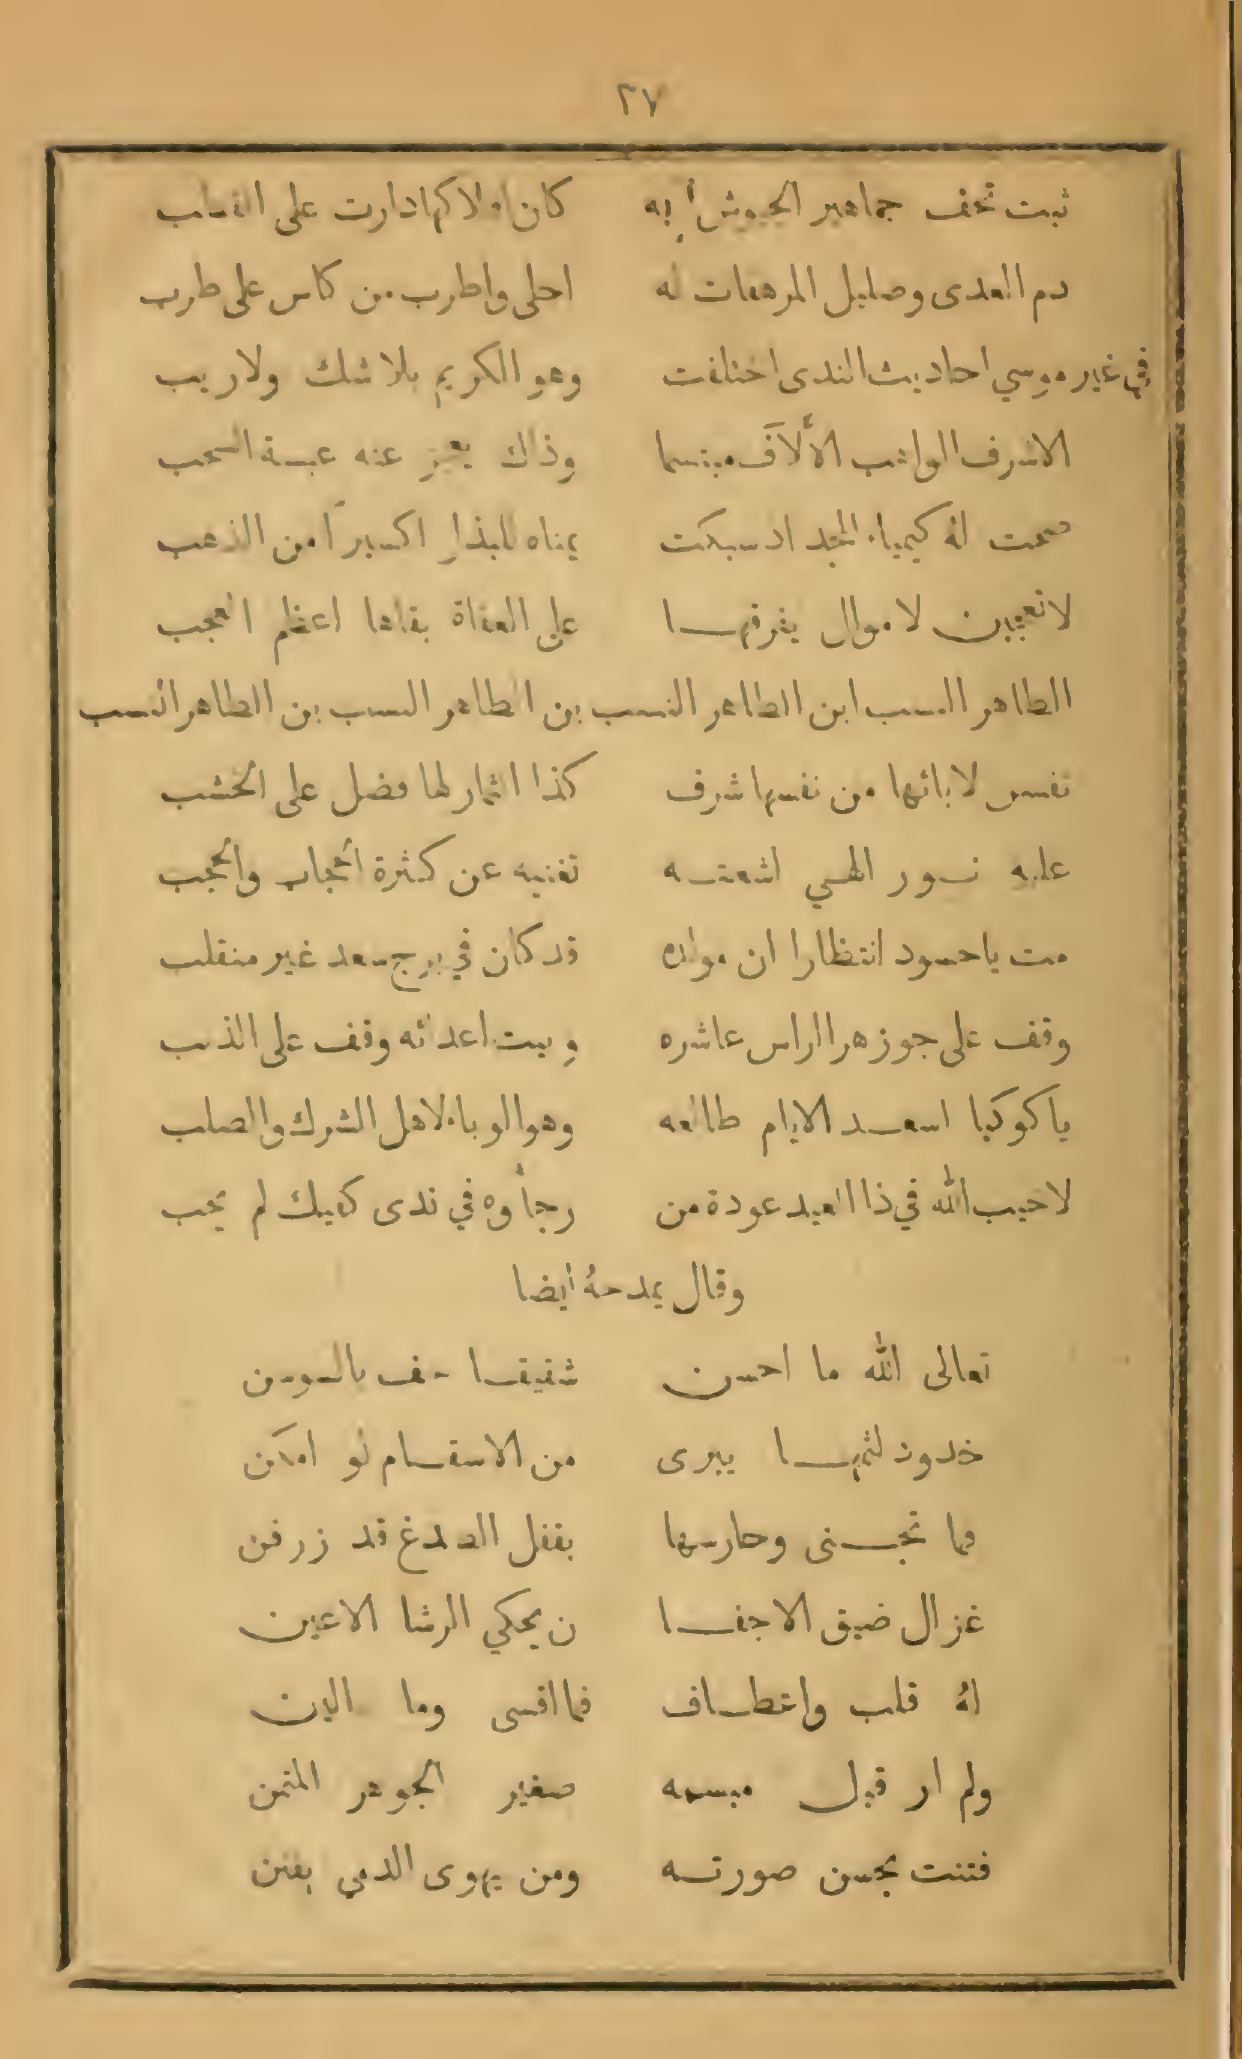 ٢٧
ثبت تحف جماهير الجيوش به كان افلاكها دارت على القطب
دم العدى وصليل المرهفات له احلى واطرب من كاس على طرب
في غير موسي احاديث الندى اختلفت وهو الكريم بلا شك ولا ريب
الاشرف الواهب الألآف مبتسما وذاك يعجز عنه عبسة السحب
صحت لهُ كيمياء المجد اذ سبكت يمناه للبذل اكسيراً من الذهب
لا تعجبن لاموال يفرقهـــا على العفاة بقاها اعظم العجب
الطاهر النسب ابن الطاهر النسب بن الطاهر النسب بن الطاهر النسب
نفس لابائها من نفسها شرف كذا الثمار لها فضل على الخشب
عليه نــور الهــي اشعتــه تغنيه عن كثرة الحجاب والحجب
مت يا حسود انتظارا ان مولده قد كان في برج سعد غير منقلب
وقف على جوزهر الراس عاشره وبيت اعدائه وقف على الذنب
يا كوكبا اسعــد الايام طالعه وهو الوباء لاهل الشرك والصلب
لا خيب الله في ذا العيد عودة من رجاؤه في ندى كفيك لم يخب
وقال يمدحهُ ايضا
تعالى الله ما احسن شقيقــا حف بالسوسن
خدود لثمهــا يبرى من الاسقــام لو امكن
فما تجــنى وحارسها بقفل الصدغ قد زرفن
غزال ضيق الاجفــا ن يحكي الرشا الاعين
لهُ قلب واعطــاف فما اقسى وما الين
ولم ار قبل مبسمه صغير الجوهر المثمن
فتنت بحسن صورتــه ومن يهوى الدمي يفتن